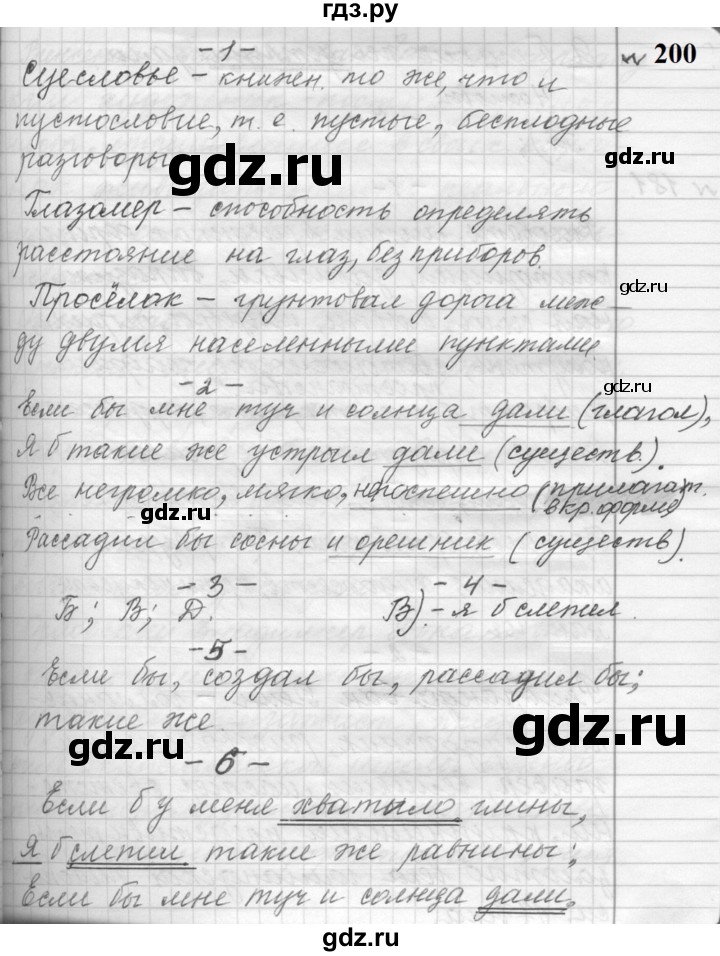 гдз.ру
№ 200
- 1 -
Суесловье – книжен. то же, что и
пустословие, т. е. пустые, бесплодные
разговоры
gdz.ru
gdz.ru
Глазомер – способность определять
расстояние на глаз, без приборов.
gdz.ru
Просёлак – грунтовая дорога меж
ду двумя населенными пунктами
gdz.ru
- 2 -
Если бы мне туч и солнца дали (глагол),
gdz.ru
Я б такие же устроил дали (существ.).
Все негромко, мягко, непоспешно (прилагат.
в кр. форме)
gdz.ru
Рассадил бы сосны и орешник (существ).
- 3 - - 4 -
Б; В; Д. В) - я б слепил.
- 5 -
Если бы, создал бы, рассадил бы;
такие же.
gdz.ru
gdz.ru
- 6 -
Если б у меня хватыло глины,
Я б слепил такие же равнины;
gdz.ru
Если бы мне туч и солнца дали,
gdz.ru